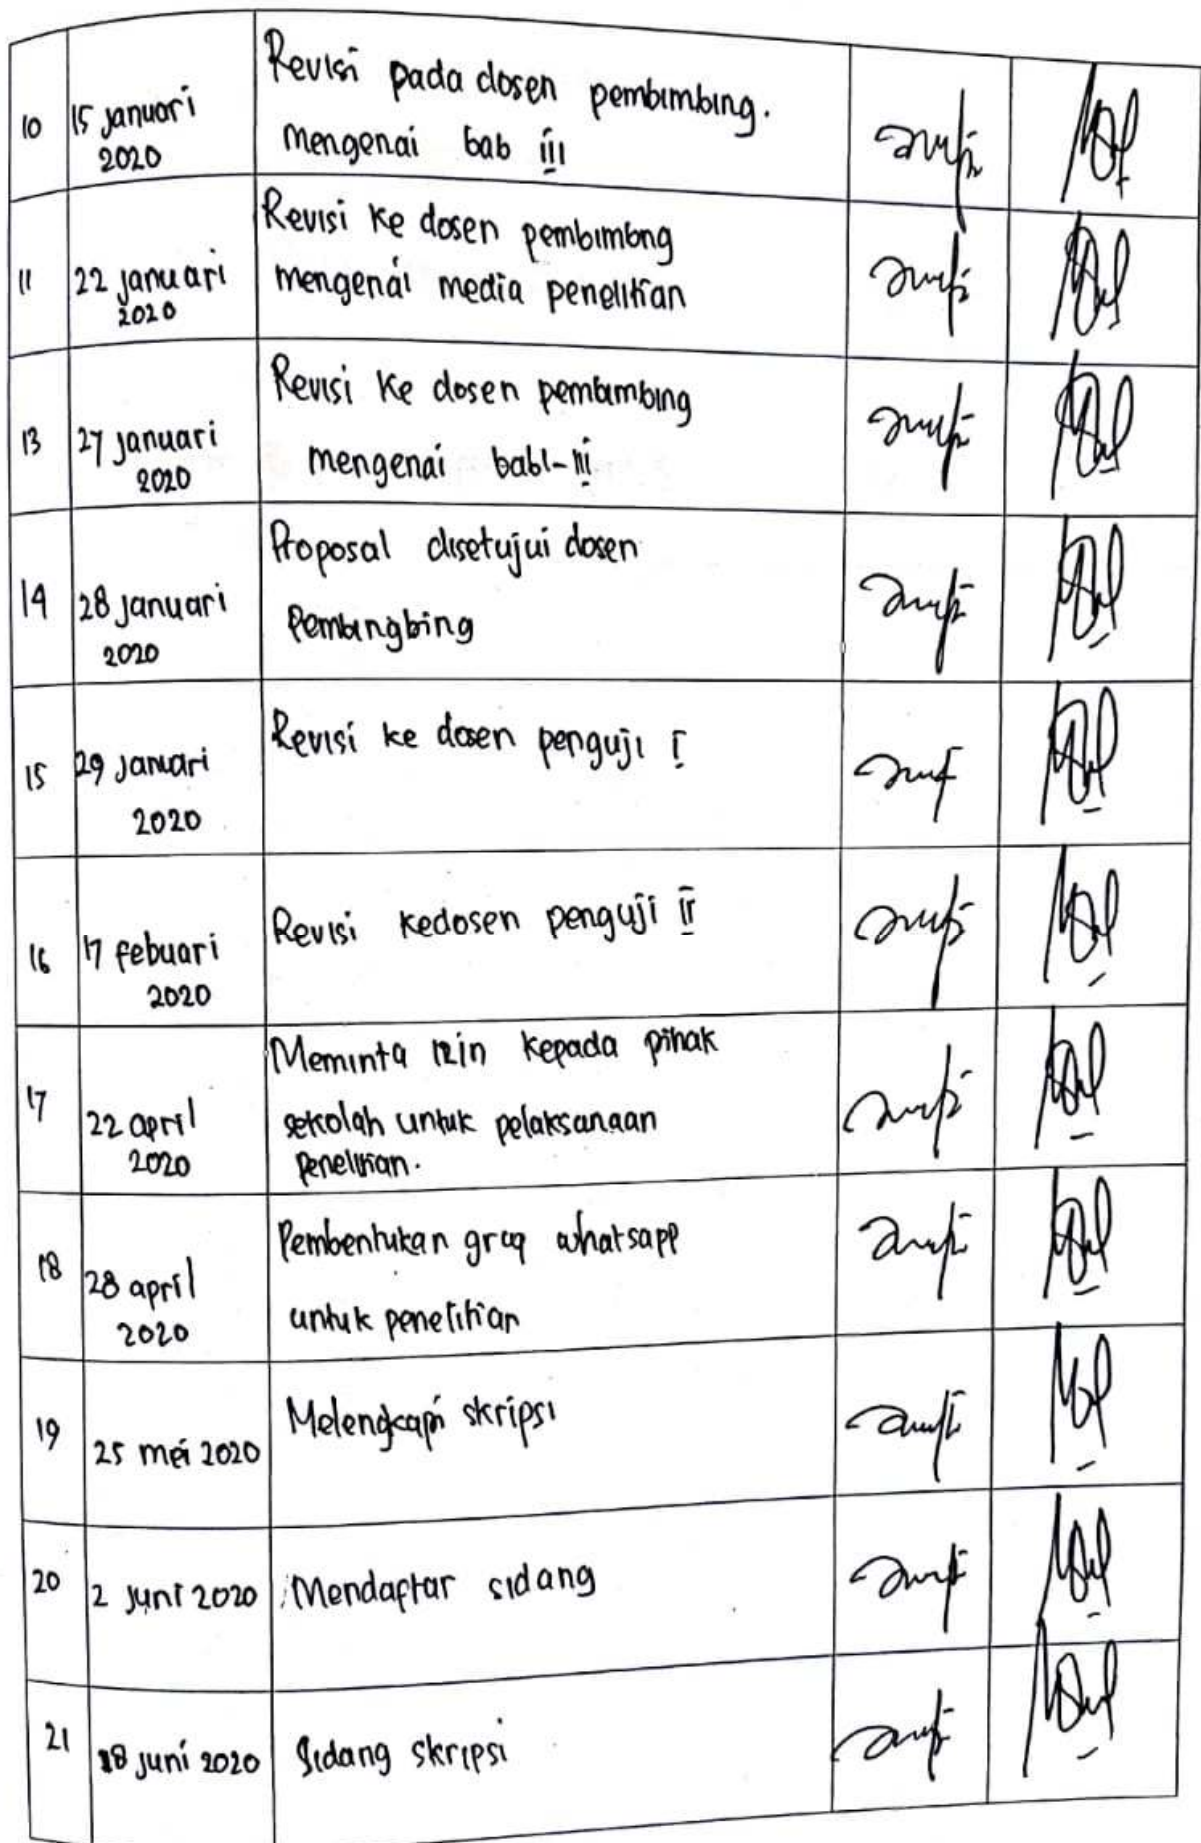 10
15 januari
2020
Revisi pada dosen pembimbing.
mengenai bab III
11
22 januari
2020
Revisi ke dosen pembimbng
mengenai media penelitian
13
27 januari
2020
Revisi ke dosen pembimbing
mengenai bab I-III
14
28 januari
2020
Proposal disetujui dosen
Pembingbing
15
29 januari
2020
Revisi ke dosen penguji I
16
17 febuari
2020
Revisi kedosen penguji II
17
22 april
2020
Meminta izin kepada pihak
sekolah untuk pelaksanaan
penelitian.
18
28 april
2020
Pembentukan grup whatsapp
untuk penelitian
19
25 mei 2020
Melengkapi skripsi
20
2 juni 2020
Mendaftar sidang
21
18 juni 2020
Sidang skripsi